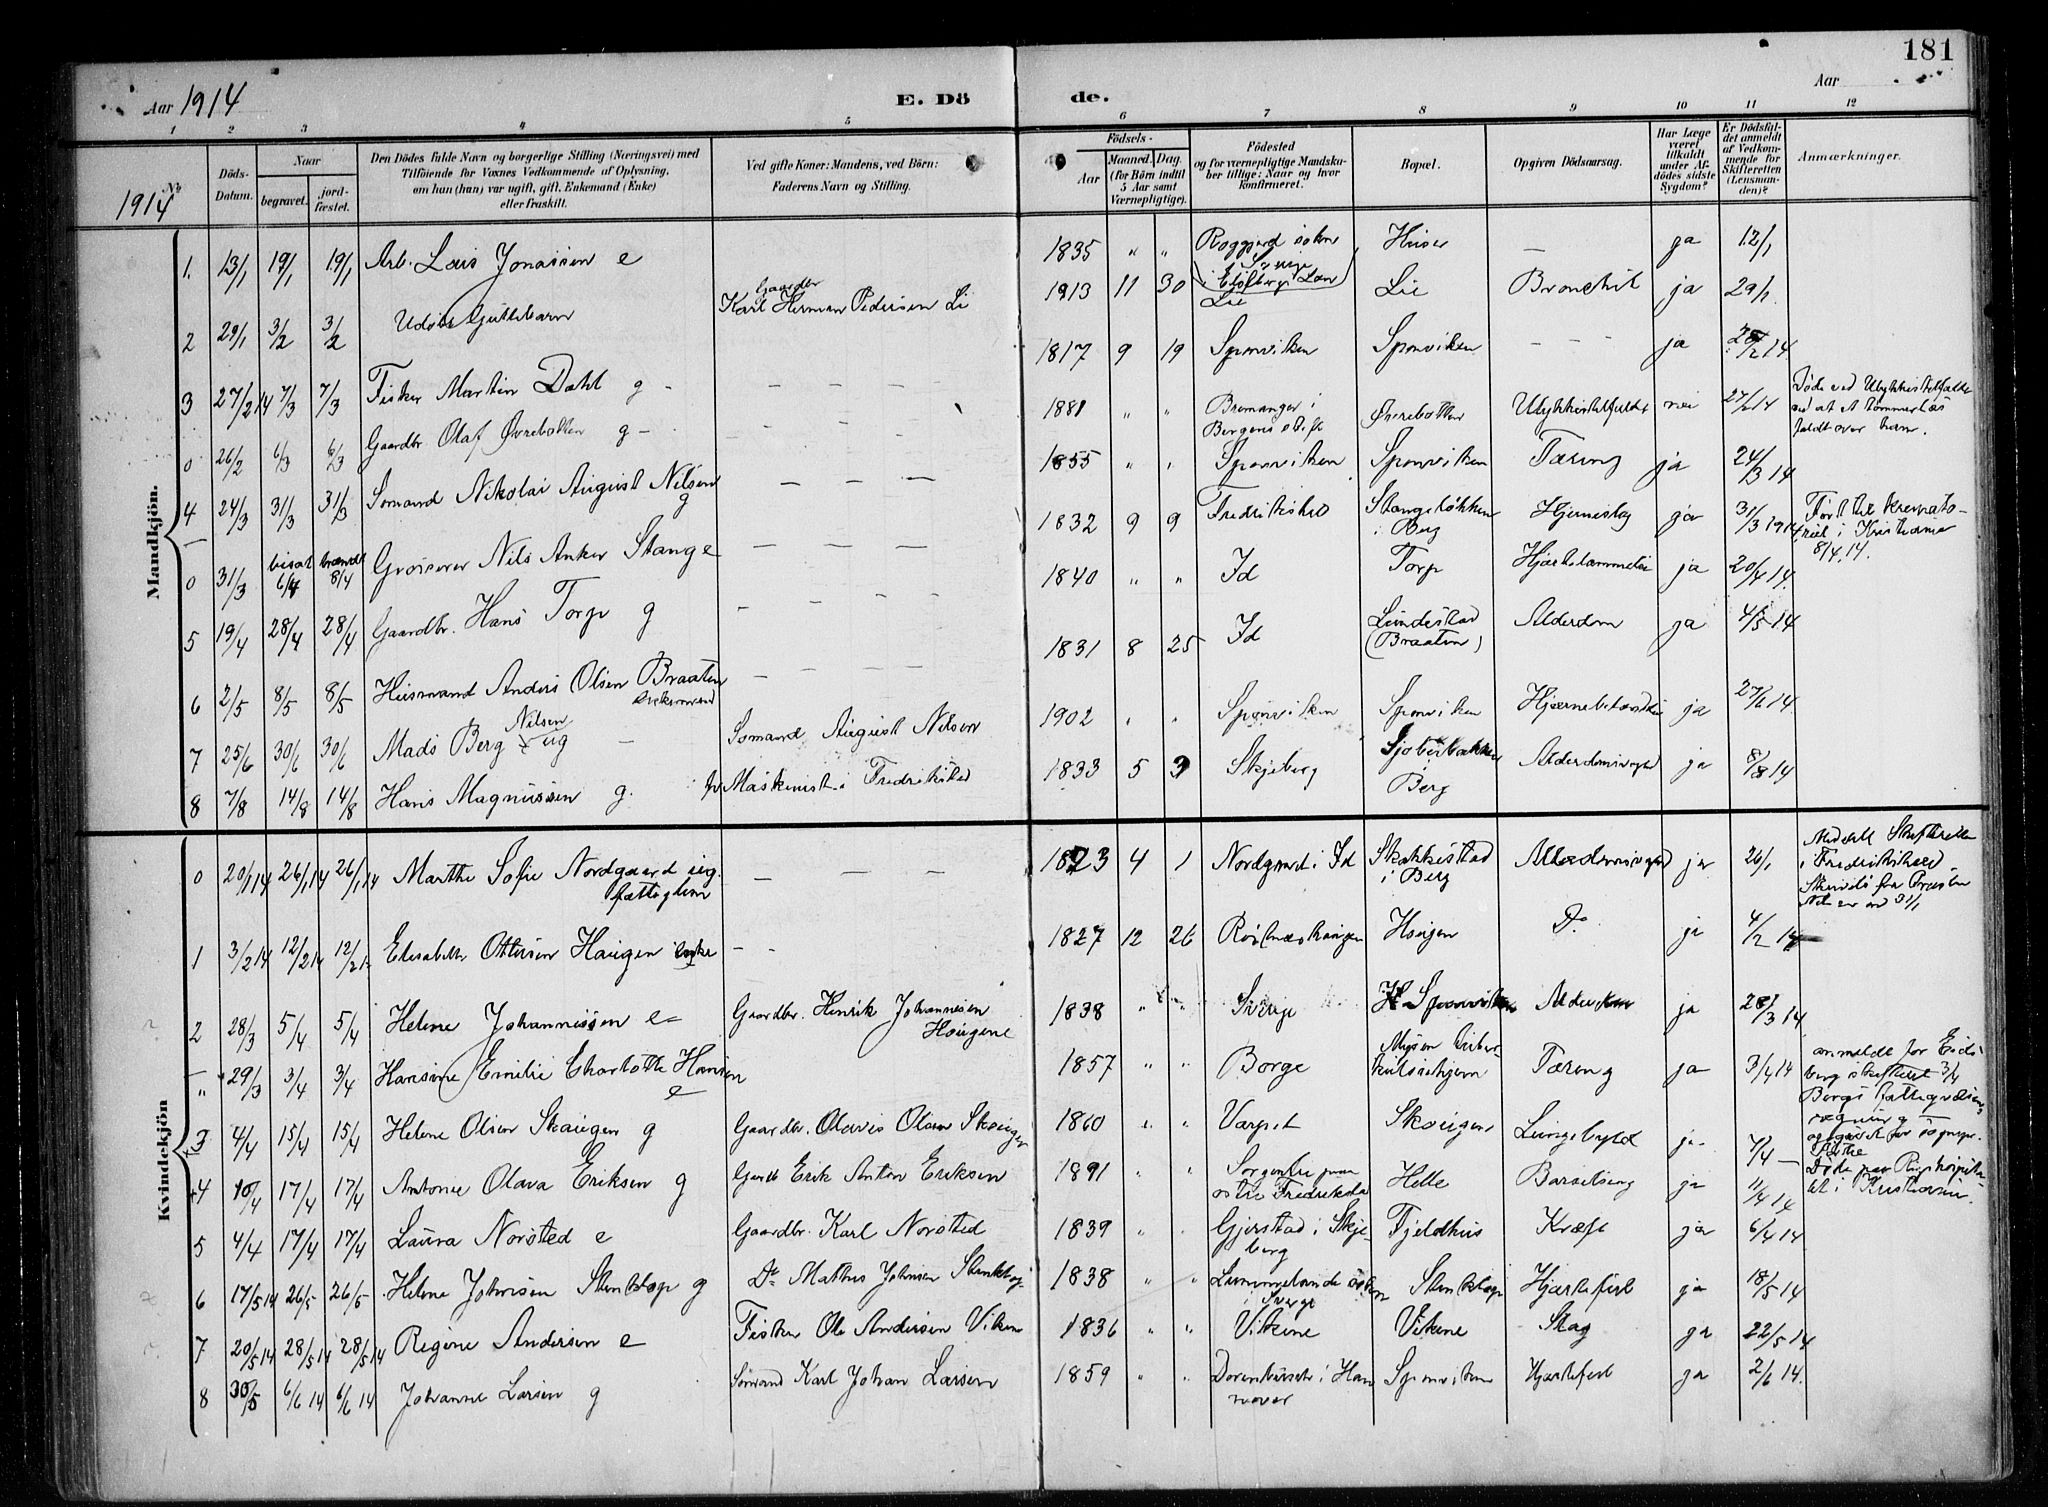 181
Aar 1914
E. Dö
de.
Aar
1 2 3 4 5 6 7 8 9 10 11 12
No
1914
Döds-Datum.
Naar
begravet.
jord-fæstet.
Den Dödes fulde Navn og borgerlige Stilling (Næringsvei) med
Tilföiende for Voxnes Vedkommende af Oplysning,
om han (hun) var ugift, gift, Enkemand (Enke)
eller fraskilt.
Ved gifte Koner: Mandens, ved Börn:
Faderens Navn og Stilling.
Födsels-
Aar
Maaned. Dag.
(for Börn indtil
5 Aar samt
Værnepligtige).
Födested
og for værnepligtige Mandska-
ber tillige: Naar og hvor
konfirmeret.
Bopæl.
Opgiven Dödsaarsag.
Har Læge
været
tilkaldt
under Af-
dödes sidste
Sygdom?
Er Dödsfal-
det anmeldt
af Vedkom-
mende for
Skifteretten
(Lensman-
den)?
Anmærkninger.
Mandkjön.
1. 13/1 19/1 19/1 Arb. Lars Jonassen e 1835 " " Huser — ja 12/1
2 29/1 3/2 3/2 Udöbt Guttebarn Gaardbr Karl Herman Pedersen Li 1913 11 30 Lie Lie Bronchit ja 29/1
3 27/2 14 7/3 7/3 Fisker Martin Dahl g - — — — 1817 9 19 Sponviken Sponviken - - - ja
0 26/2 6/3 6/3 Gaardbr Olaf Øvrebotten g - - - - 1881 " " Bremanger i Bergens stift Øvrebotten Ulykkestilfælde nei 27/2 14 Döde ved Ulykkestilfælde
ved at et tömmerlæs
faldt over ham.
4 24/3 31/3 31/3 Sömand Nikolai August Nilsen g — — — 1855 " " Sponviken Sponviken Tæring ja 24/3 14
0 31/3 bisat 6/4 brændt 8/4 Grosserer Nils Anker Stang e — — — 1832 9 9 Fredrikshald Stangelökken i Berg Hjerneslag ja 31/3 1914 Fört til kremato-
riet i Kristiania
8/4 14.
5 19/4 28/4 28/4 Gaardbr. Hans Torp g - - - - 1840 " " Id Torp Hjertelammelse ja 20/4 14.
6 2/5 8/5 8/5 Husmand Anders Olsen Braaten - - - - 1831 8 25 Id Lundestad (Braaten) Alderdom ja 4/5 14
7 25/6 30/6 30/6 Mads Berg Nilsen ug — Sömand August Nilsen 1902 " " Sponviken Sponviken Hjernebetændelse ja 27/6 14.
8 7/8 14/8 14/8 Hans Magnussen g. Maskinist i Fredrikstad 1833 5 3 Skjeberg Berg ja 8/8 14
Kvindekjön
0 20/1 14 26/1 14 26/1 14 Marthe Sofie Nordgaard ug. fattiglem — — — 1823 4 1 Nordgaard i Id Skakkestad i Berg ja 26/1 Skifteretten
i Fredrikshald
1 3/2 14 12/2 14 12/2 14 Elisabeth Ottersen Haugen enke - - 1827 12 26 Haugen Do. ja 4/2 14
2 28/3 5/4 5/4 Helene Johannessen e- Gaardbr. Henrik Johannesen Haugene 1838 " " Sverige Sponviken ja 28/3 14
" 29/3 3/4 3/4 Hansine Emilie Charlotte Hansen e 1857 " " Borge Tæring ja 3/4 14 anmeldt for Eids-
berg skifteret 3/4
3 4/4 15/4 15/4 Helene Olsen Skaugen g Gaardbr. Olavus Olsen Skaugen 1860 " " Varpet Skaugen Lungebyld ja 7/4 —
4 10/4 17/4 17/4 Antonie Olava Eriksen g Gaardb Erik Anton Eriksen 1891 " " Helle Barselseng ja 11/4 14 Döde paa Rigshospita-
let i Kristiania.
5 4/4 17/4 17/4 Laura Norsted e Gaardbr. Karl Norsted 1839 " " Gjerstad i Skje-
berg Fjeldhus Kræft ja 6/4 14.
6 17/5 14 26/5 26/5 Helene Johnsen Stenktop g Do Mathis Johnsen 1838 " " i Sverge Hjertefeil ja 18/5 14
7 20/5 14 28/5 14 28/5 14 Regine Andersen e Fisker Ole Andersen Viken 1836 " " Vikene Vikene Slag ja 22/5 14
8 30/5 6/6 14 6/6 14 Johanne Larsen g Sömand Karl Johan Larsen 1859 " " i Han
nover Sponviken Hjertefeil ja 2/6 14.